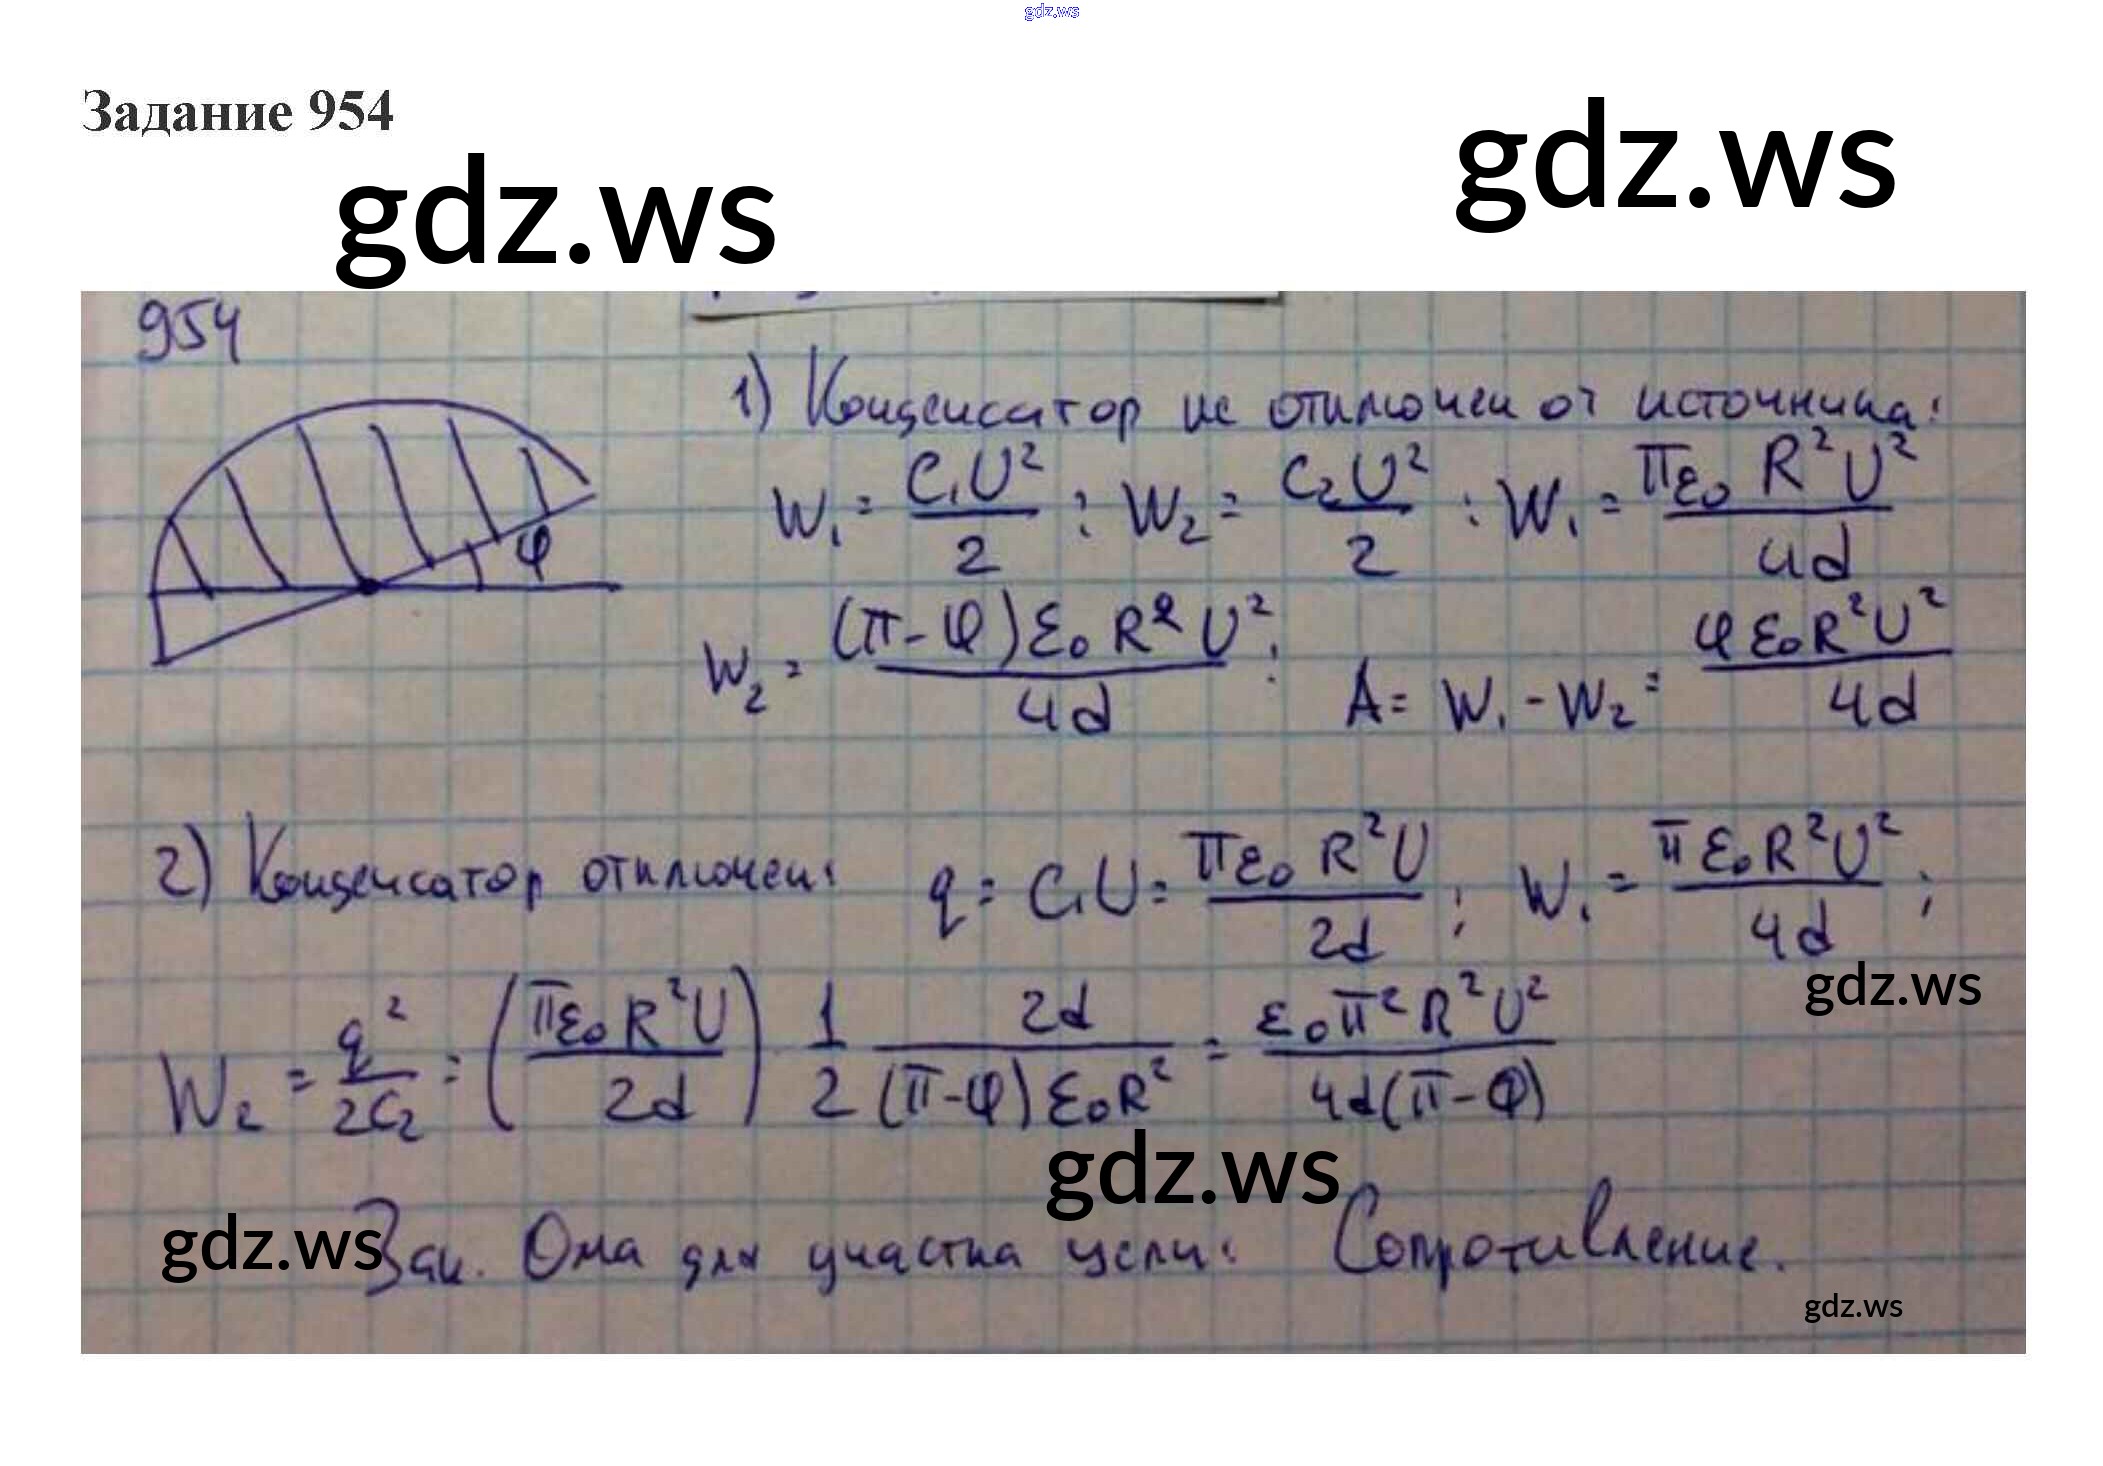 gdz.ws
Задание 954
gdz.ws
gdz.ws
954
1) Конденсатор не отключен от источника:
W₁ = C₁U²/2 ; W₂ = C₂U²/2 ; W₁ = πε₀ R²U²/4d
φ
W₂ = (π-φ)ε₀R²U²/4d ; A = W₁ - W₂ = φε₀R²U²/4d
2) Конденсатор отключен: q = C₁U = πε₀ R²U/2d ; W₁ = πε₀R²U²/4d ;
gdz.ws
W₂ = q²/2C₂ = (πε₀R²U/2d) 1/2 2d/(π-φ)ε₀R² = ε₀π²R²U²/4d(π-φ)
gdz.ws
gdz.ws
Зак. Ома для участка цепи: Сопротивление.
gdz.ws